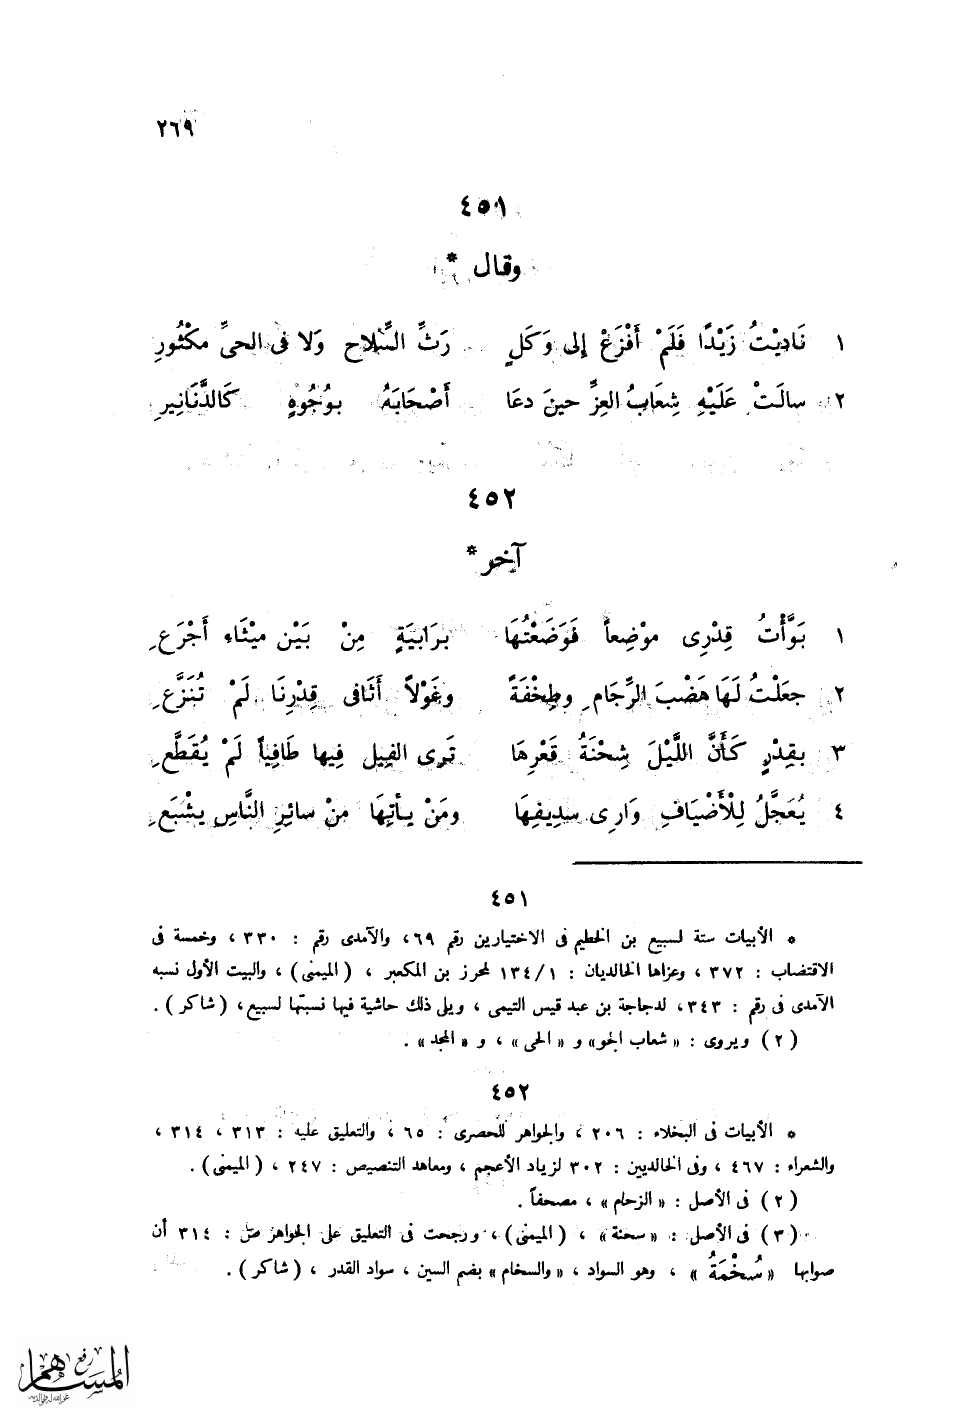 ٢٦٩
٤٥١
وقال *
١ نَادَيْتُ زَيْدًا فَلَمْ أَفْزَعْ إلى وَكَلٍ رَثِّ السِّلاح وَلا فى الحىِّ مكْثُورِ
٢ سالَتْ عَلَيْهِ شِعَابُ العِزِّ حينَ دعَا أَصْحَابَهُ بوُجُوهٍ كَالدَّنَانِيرِ
٤٥٢
آخر *
١ بَوَّأْتُ قِدْرِى موْضِعاً فَوَضَعْتُهَا برَابِيَةٍ مِنْ بَيْنِ ميْثَاءِ أَجْرَعِ
٢ جعَلْتُ لَهَا هَضْبَ الرِّجَامِ وطِخْفَةً وغَوْلاً أَثَافى قِدْرِنَا لَمْ تُنَزَّعِ
٣ بقِدْرٍ كَأَنَّ اللَّيْلَ شِحْنَةُ قَعْرِهَا تَرى الفيِل فِيها طَافِياً لَمْ يُقَطَّعِ
٤ يُعَجَّلُ لِلْأَضْيَافِ وَارِى سدِيفِهَا ومَنْ يأتِهَا منْ سائِرِ النَّاسِ يشْبَعِ
٤٥١
* الأبيات ستة لسبيع بن الخطيم فى الاختيارين رقم ٦٩ ، والآمدى رقم : ٣٣٠ ، وخمسة فى
الاقتضاب : ٣٧٢ ، وعزاها الخالديان : ١/١٣٤ لمحرز بن المكعبر ، ( الميمنى ) ، والبيت الأول نسبه
الآمدى فى رقم : ٣٤٣ ، لدجاجة بن عبد قيس التيمى ، ويلى ذلك حاشية فيها نسبتها لسبيع ، ( شاكر ) .
( ٢ ) ويروى : « شعاب الجو» و « الحى » ، و « المجد » .
٤٥٢
* الأبيات فى البخلاء : ٢٠٦ ، والجواهر للحصرى : ٦٥ ، والتعليق عليه : ٣١٣ ، ٣١٤ ،
والشعراء : ٤٦٧ ، وفى الخالديين : ٣٠٢ لزياد الأعجم ، ومعاهد التنصيص : ٢٤٧ ، ( الميمنى ) .
( ٢ ) فى الأصل : « الزحام » ، مصحفاً .
( ٣ ) فى الأصل : « سحنة » ، ( الميمنى ) ، ورجحت فى التعليق على الجواهر ص : ٣١٤ أن
صوابها « سُخْمَةُ » ، وهو السواد ، « والسخام » بضم السين ، سواد القدر ، ( شاكر ) .
المساهم
رفع